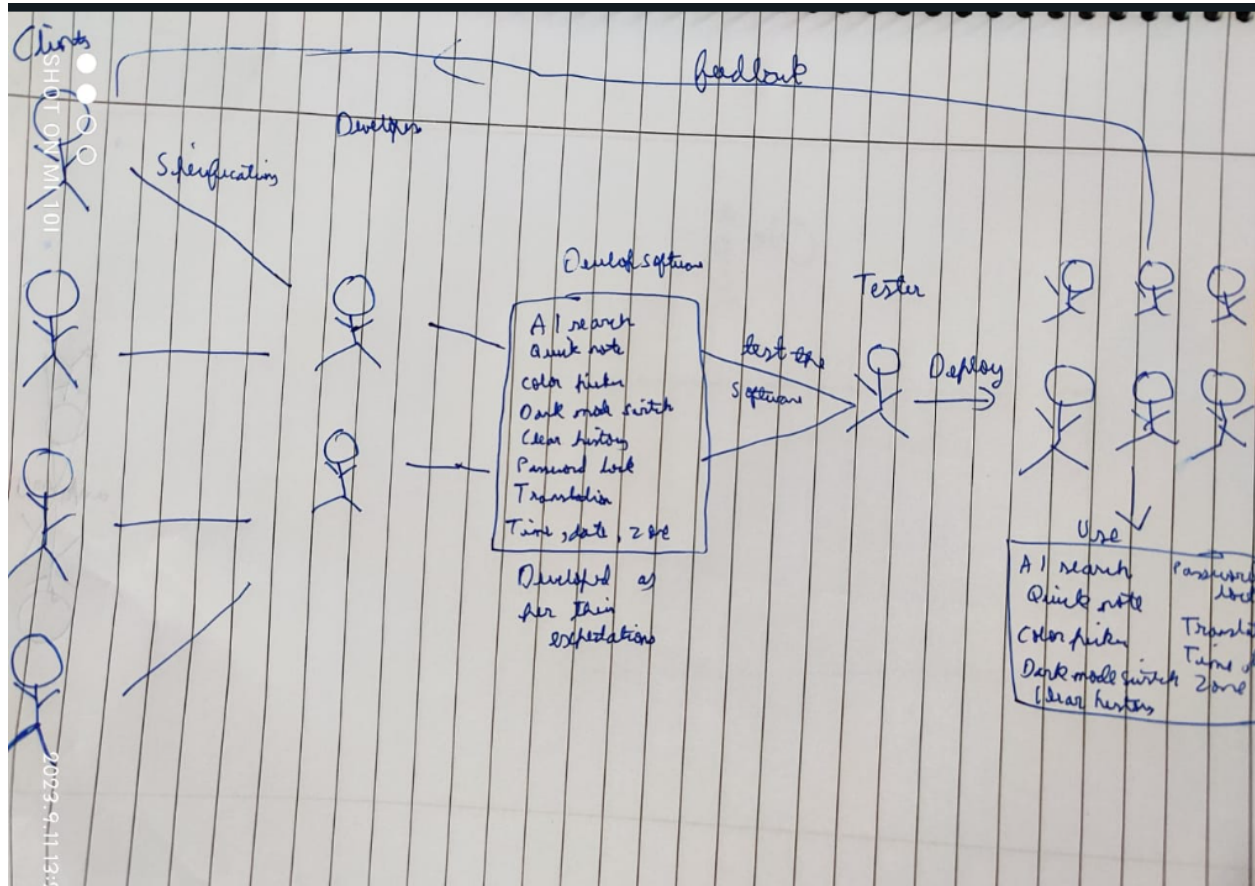 Clients
feedback
Developers
Specifications
Develop software
AI search
Quick note
Color picker
Dark mode switch
Clear history
Password lock
Translation
Time, date, zone
Developed as
per their
expectations
test the
software
Tester
Deploy
Use
AI search
Quick note
Color picker
Dark mode switch
Clear history
Password
lock
Transla
Time
Zone
SHOT ON MI 10I
2023.9.11 13: